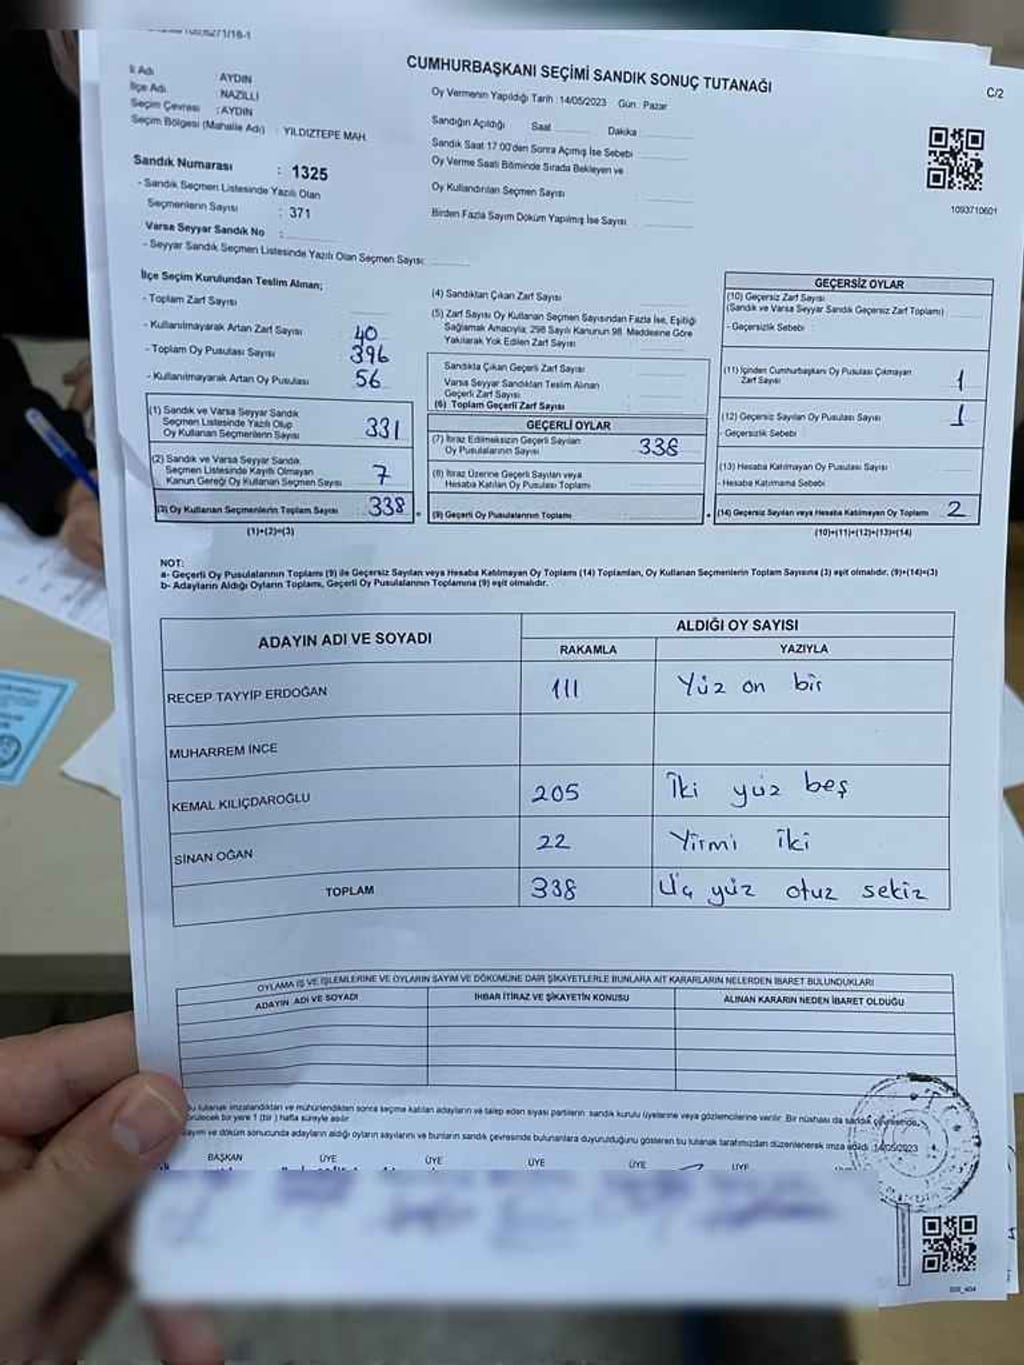 CUMHURBAŞKANI SEÇİMİ SANDIK SONUÇ TUTANAĞI
C/2
İl Adı : AYDIN
İlçe Adı : NAZİLLİ
Seçim Çevresi : AYDIN
Seçim Bölgesi (Mahalle Adı) : YILDIZTEPE MAH.
Oy Vermenin Yapıldığı Tarih : 14/05/2023 Gün : Pazar
Sandığın Açıldığı Saat Dakika
Sandık Saat 17:00'den Sonra Açılmış İse Sebebi
Oy Verme Saati Bitiminde Sırada Bekleyen ve
Oy Kullandırılan Seçmen Sayısı
Birden Fazla Sayım Döküm Yapılmış İse Sayısı
1093710601
Sandık Numarası : 1325
- Sandık Seçmen Listesinde Yazılı Olan
Seçmenlerin Sayısı : 371
Varsa Seyyar Sandık No :
- Seyyar Sandık Seçmen Listesinde Yazılı Olan Seçmen Sayısı:
İlçe Seçim Kurulundan Teslim Alınan;
- Toplam Zarf Sayısı
- Kullanılmayarak Artan Zarf Sayısı 40
- Toplam Oy Pusulası Sayısı 396
- Kullanılmayarak Artan Oy Pusulası 56
(1) Sandık ve Varsa Seyyar Sandık
Seçmen Listesinde Yazılı Olup
Oy Kullanan Seçmenlerin Sayısı 331
(2) Sandık ve Varsa Seyyar Sandık
Seçmen Listesinde Kayıtlı Olmayan
Kanun Gereği Oy Kullanan Seçmen Sayısı 7
(3) Oy Kullanan Seçmenlerin Toplam Sayısı 338
(1)+(2)=(3)
(4) Sandıktan Çıkan Zarf Sayısı
(5) Zarf Sayısı Oy Kullanan Seçmen Sayısından Fazla İse, Eşitliği
Sağlamak Amacıyla; 298 Sayılı Kanunun 98. Maddesine Göre
Yakılarak Yok Edilen Zarf Sayısı
Sandıkta Çıkan Geçerli Zarf Sayısı
Varsa Seyyar Sandıktan Teslim Alınan
Geçerli Zarf Sayısı
(6) Toplam Geçerli Zarf Sayısı
GEÇERLİ OYLAR
(7) İtiraz Edilmeksizin Geçerli Sayılan
Oy Pusulalarının Sayısı 336
(8) İtiraz Üzerine Geçerli Sayılan veya
Hesaba Katılan Oy Pusulası Toplamı
(9) Geçerli Oy Pusulalarının Toplamı
GEÇERSİZ OYLAR
(10) Geçersiz Zarf Sayısı
(Sandık ve Varsa Seyyar Sandık Geçersiz Zarf Toplamı)
- Geçersizlik Sebebi :
(11) İçinden Cumhurbaşkanı Oy Pusulası Çıkmayan
Zarf Sayısı 1
(12) Geçersiz Sayılan Oy Pusulası Sayısı 1
- Geçersizlik Sebebi
(13) Hesaba Katılmayan Oy Pusulası Sayısı
- Hesaba Katılmama Sebebi
(14) Geçersiz Sayılan veya Hesaba Katılmayan Oy Toplamı 2
(10)+(11)+(12)+(13)=(14)
NOT:
a- Geçerli Oy Pusulalarının Toplamı (9) ile Geçersiz Sayılan veya Hesaba Katılmayan Oy Toplamı (14) Toplamları, Oy Kullanan Seçmenlerin Toplam Sayısına (3) eşit olmalıdır. (9)+(14)=(3)
b- Adayların Aldığı Oyların Toplamı, Geçerli Oy Pusulalarının Toplamına (9) eşit olmalıdır.
ADAYIN ADI VE SOYADI
ALDIĞI OY SAYISI
RAKAMLA YAZIYLA
RECEP TAYYİP ERDOĞAN 111 Yüz on bir
MUHARREM İNCE
KEMAL KILIÇDAROĞLU 205 İki yüz beş
SİNAN OĞAN 22 Yirmi iki
TOPLAM 338 Üç yüz otuz sekiz
OYLAMA İŞ VE İŞLEMLERİNE VE OYLARIN SAYIM VE DÖKÜMÜNE DAİR ŞİKAYETLERLE BUNLARA AİT KARARLARIN NELERDEN İBARET BULUNDUKLARI
ADAYIN ADI VE SOYADI İHBAR İTİRAZ VE ŞİKAYETİN KONUSU ALINAN KARARIN NEDEN İBARET OLDUĞU
bu tutanak imzalandıktan ve mühürlendikten sonra seçime katılan adayların ve talep eden siyasi partilerin sandık kurulu üyelerine veya gözlemcilerine verilir. Bir nüshası da sandık çevresinde,
bir yere 1 (bir) hafta süreyle asılır.
Sayım ve döküm sonucunda adayların aldığı oyların sayılarını ve bunların sandık çevresinde bulunanlara duyurulduğunu gösteren bu tutanak tarafımızdan düzenlenerek imza edildi. 14/05/2023
BAŞKAN ÜYE ÜYE ÜYE ÜYE ÜYE